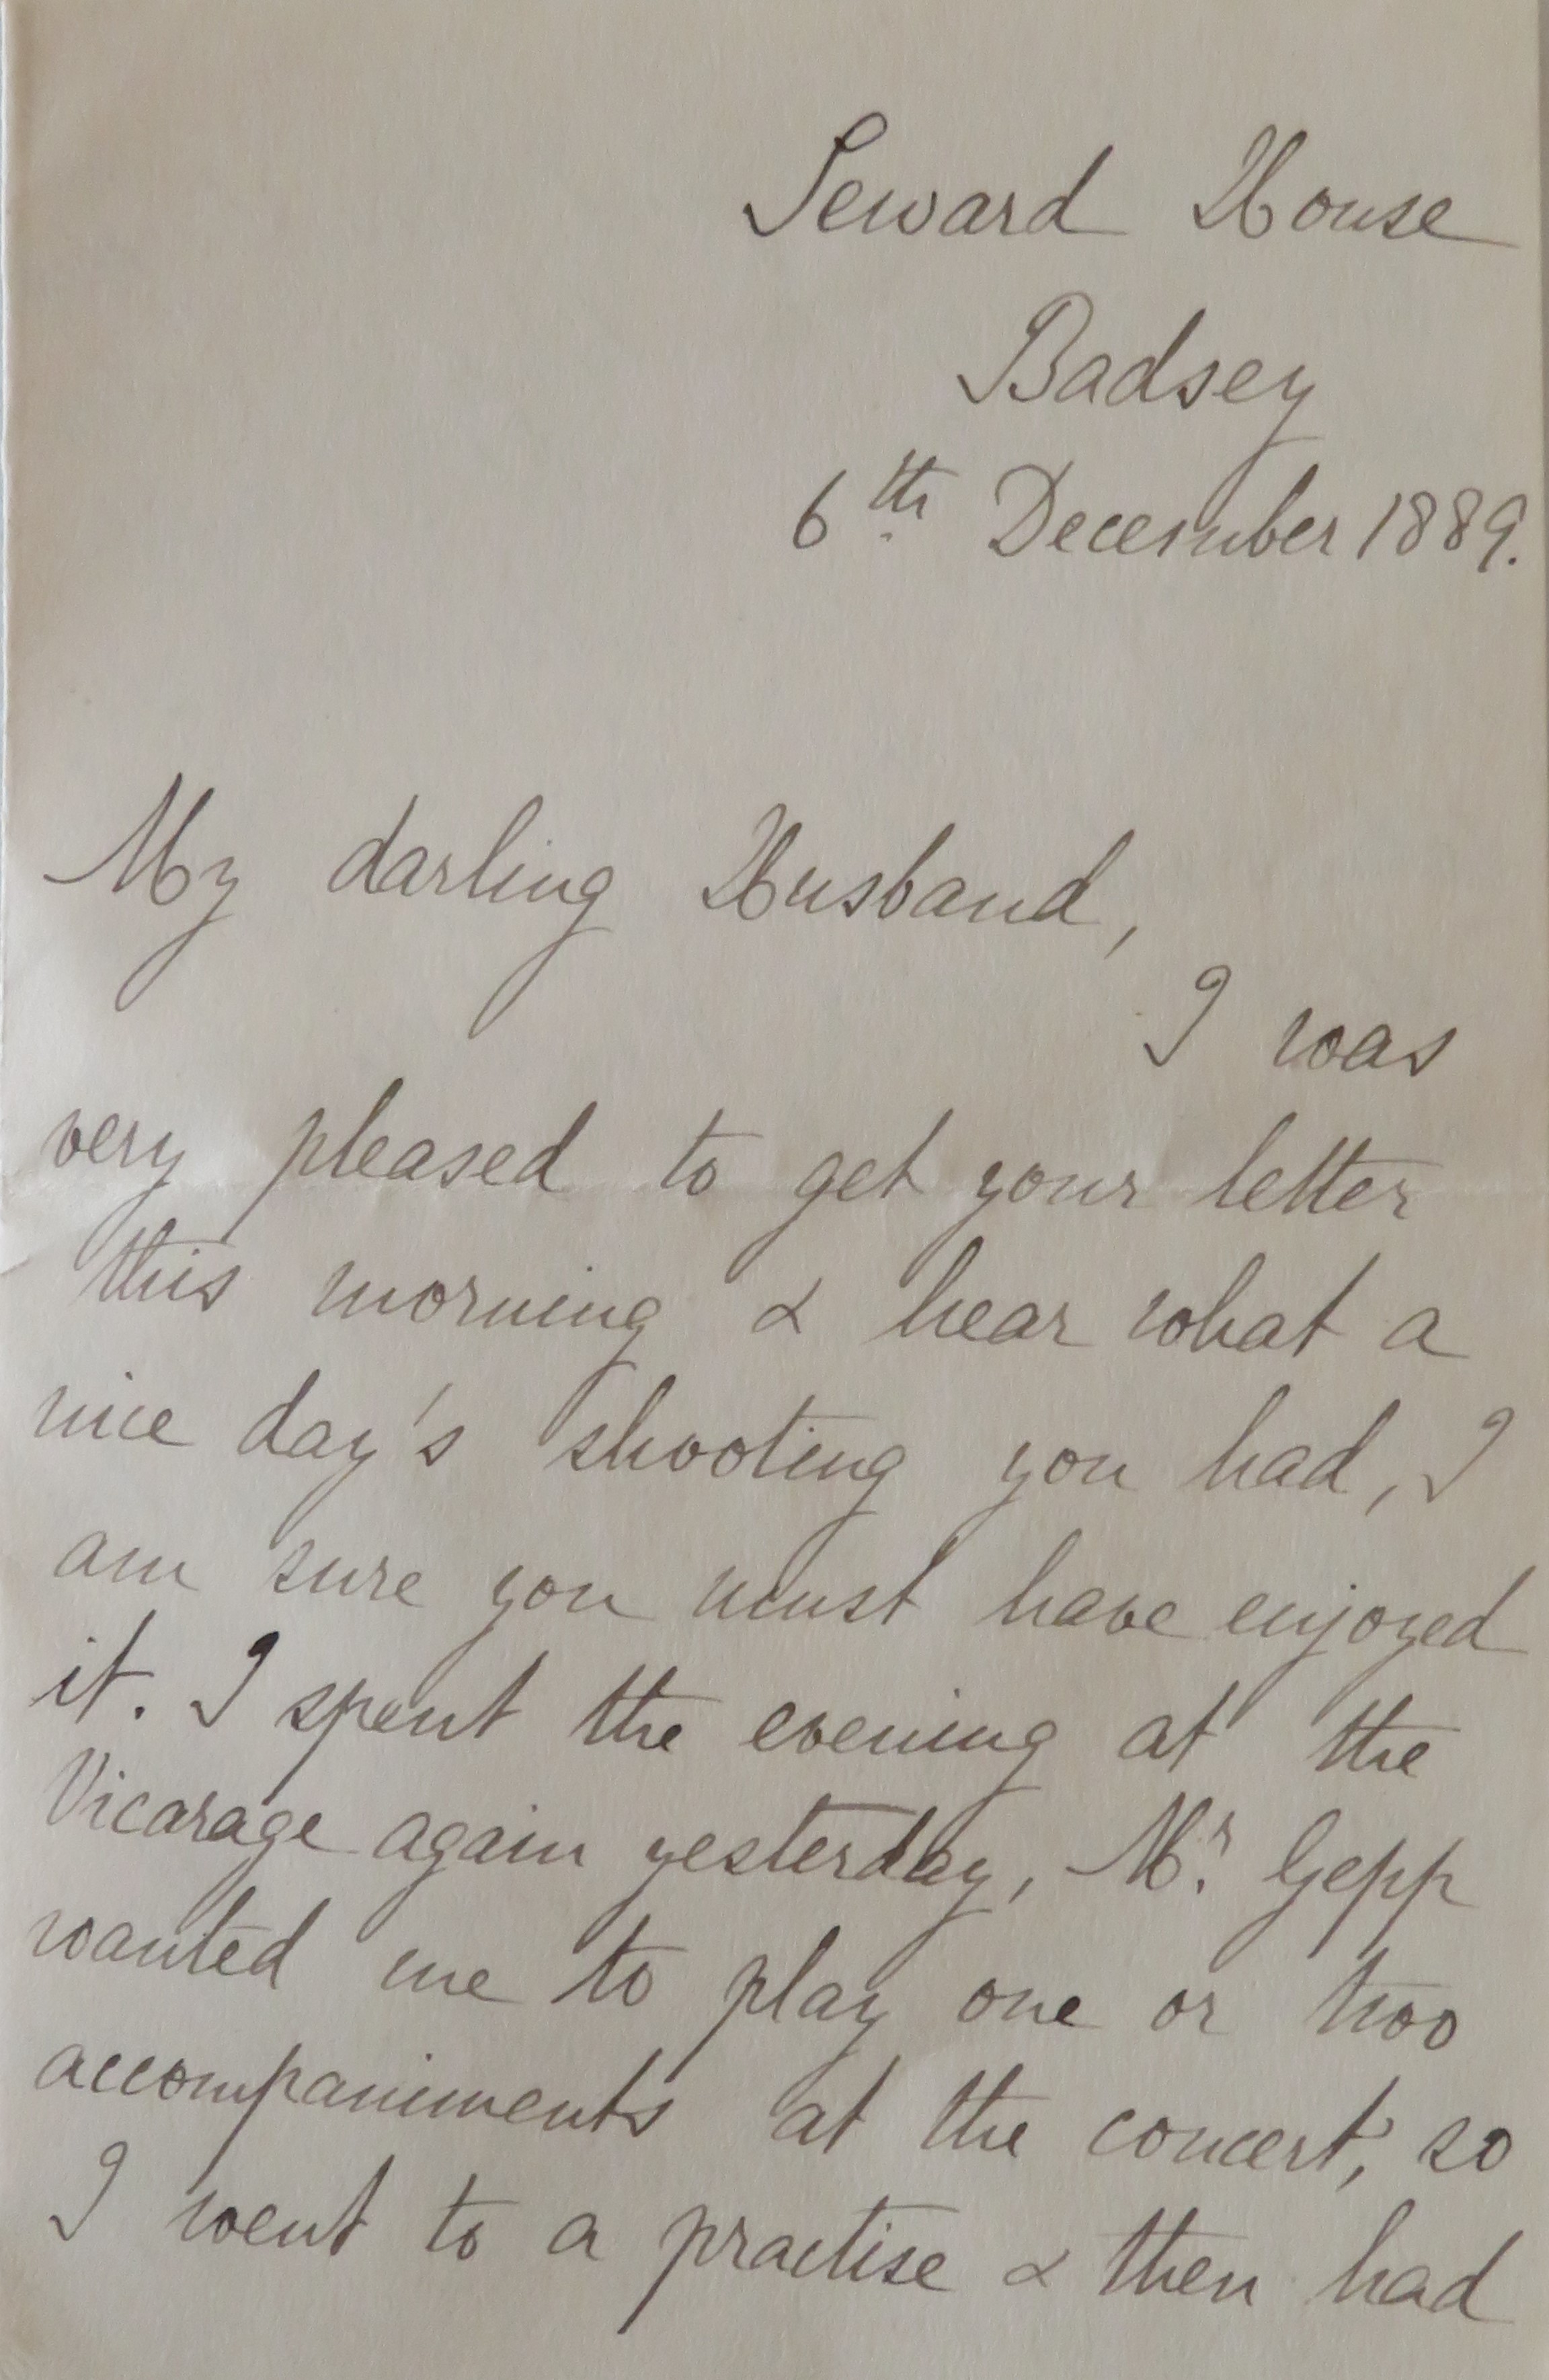 Seward House
Badsey
6th December 1889.
My darling Husband,
I was
very pleased to get your letter
this morning & hear what a
nice day's shooting you had, I
am sure you must have enjoyed
it. I spent the evening at the
Vicarage again yesterday, Mr. Gepp
wanted me to play one or two
accompaniments at the concert, so
I went to a practise & then had